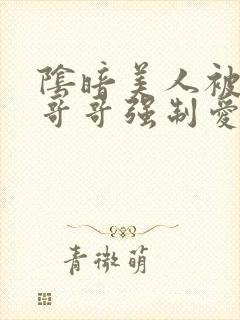 陰暗美人被
哥哥强制愛
青微萌